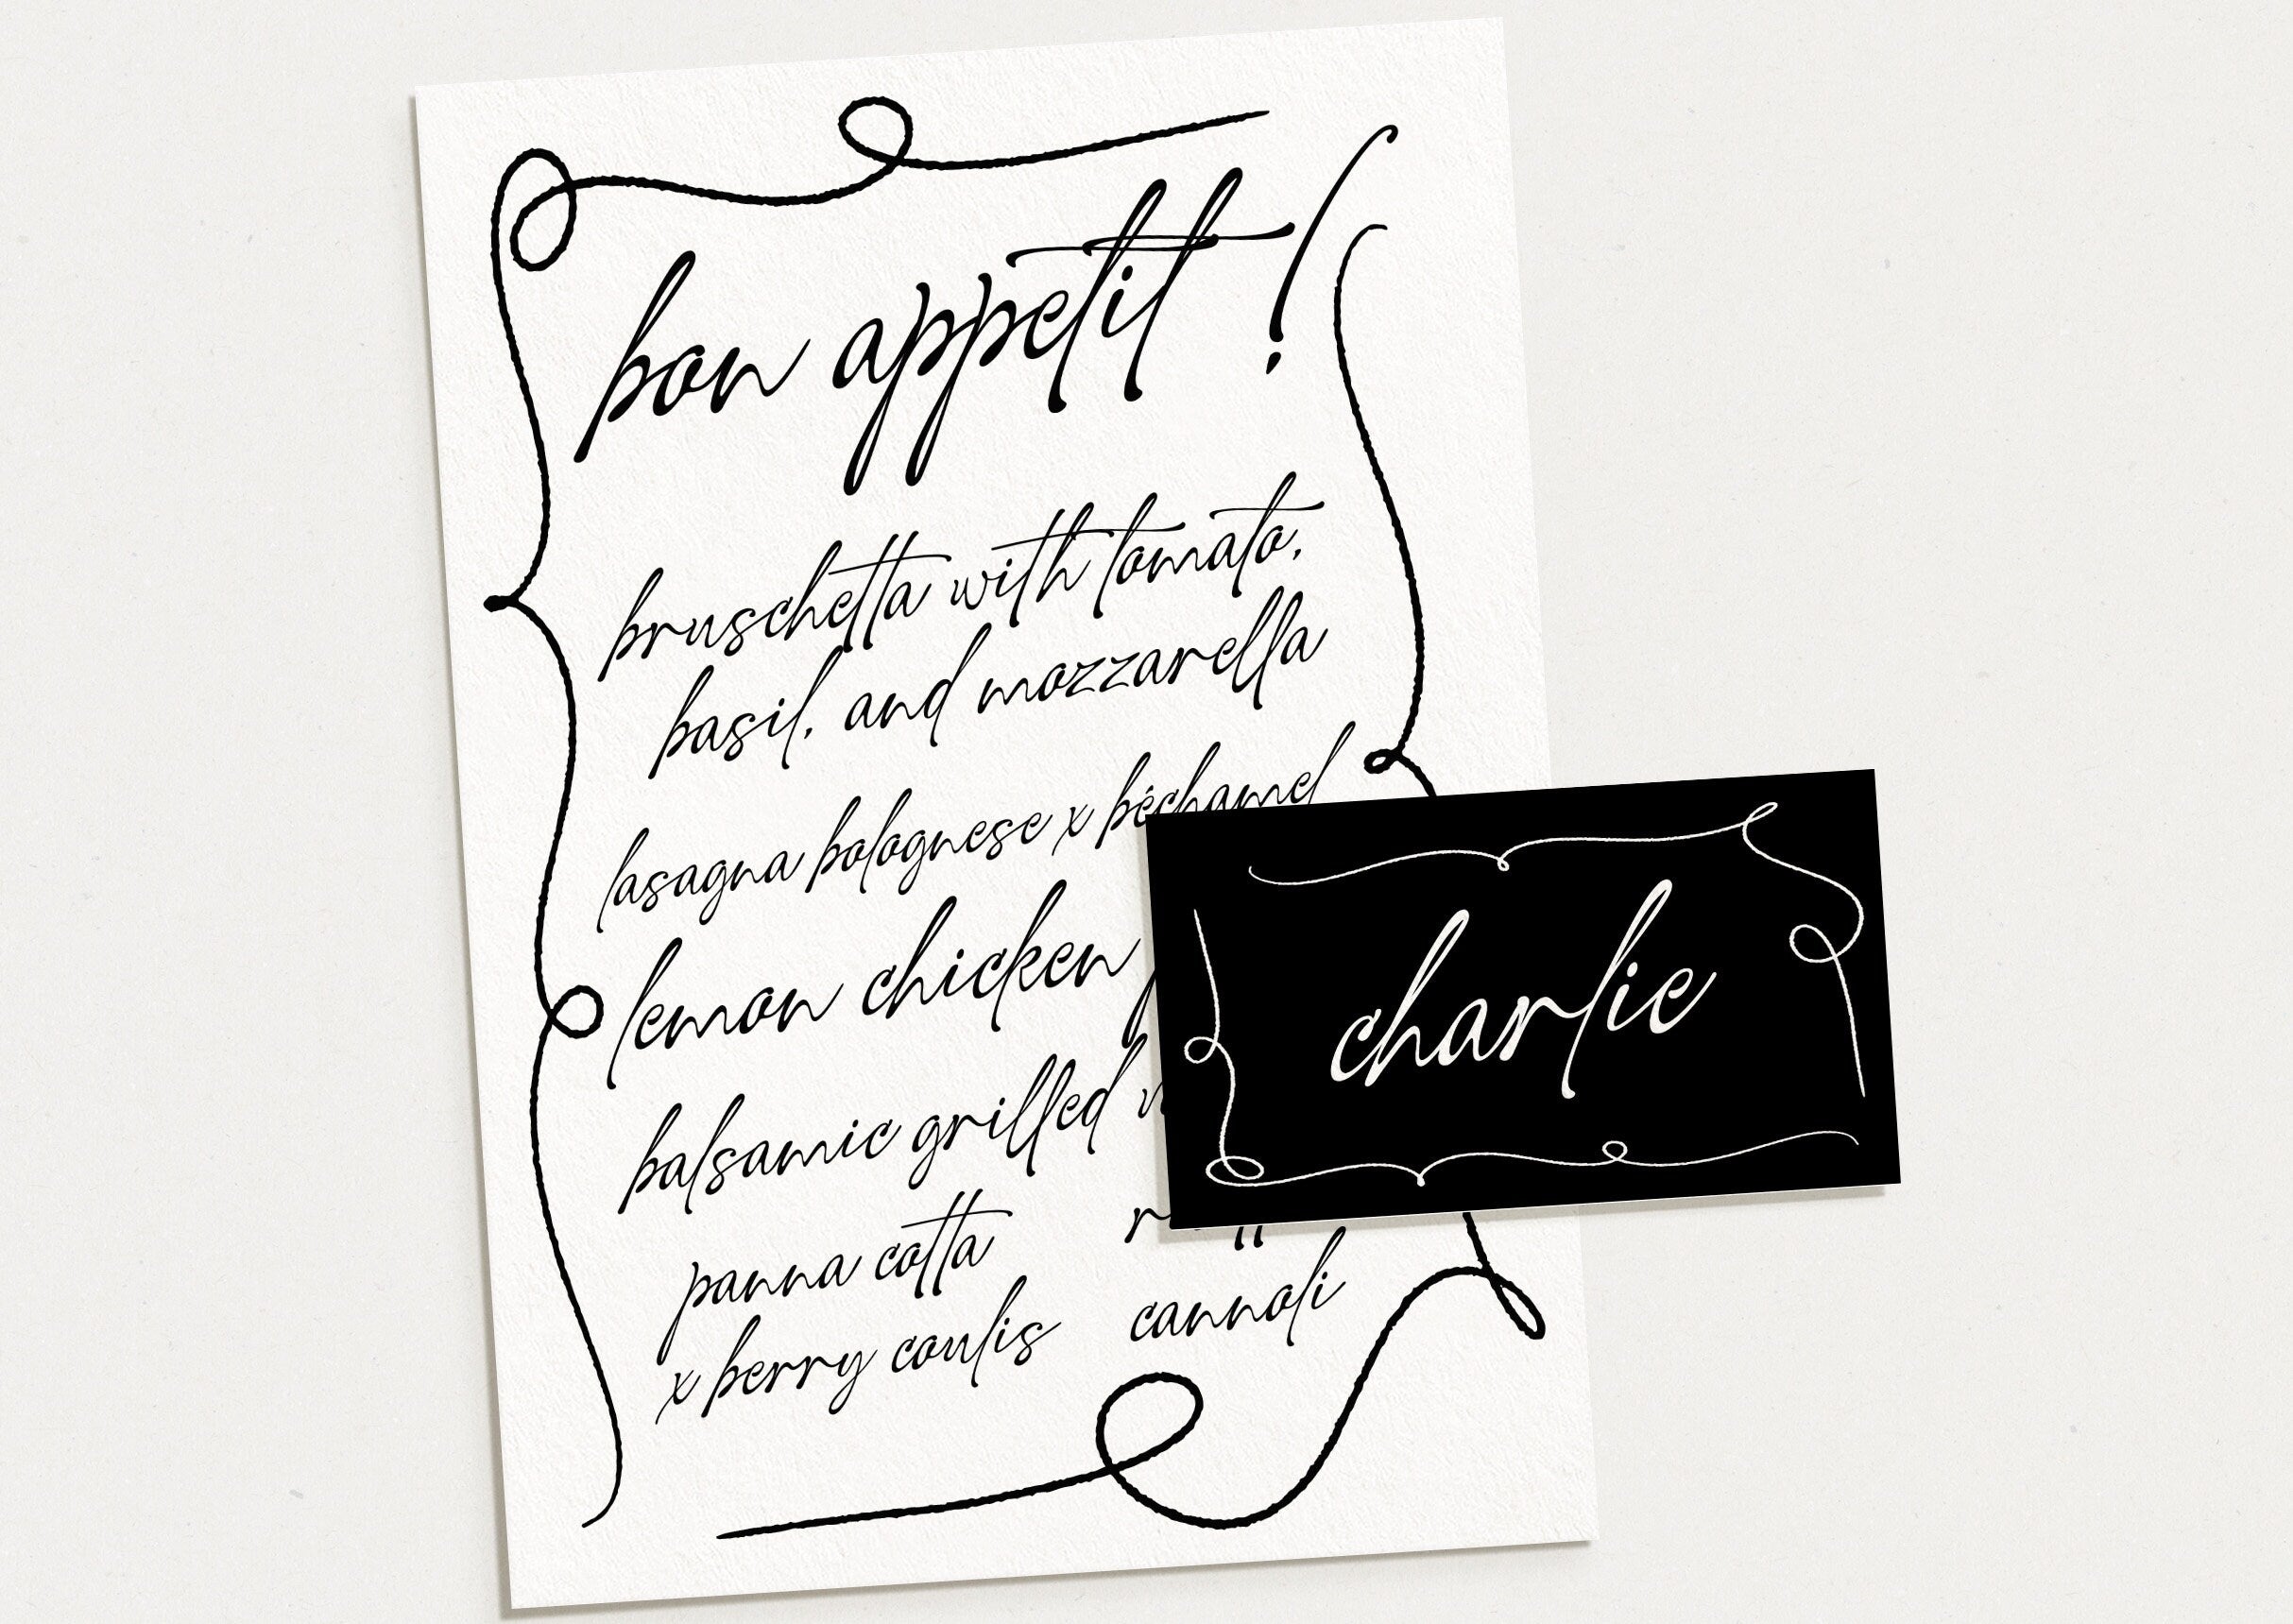 bon appetit!
bruschetta with tomato,
basil, and mozzarella
lasagna bolognese x béchamel
lemon chicken
balsamic grilled
panna cotta
x berry coulis
cannoli
charlie